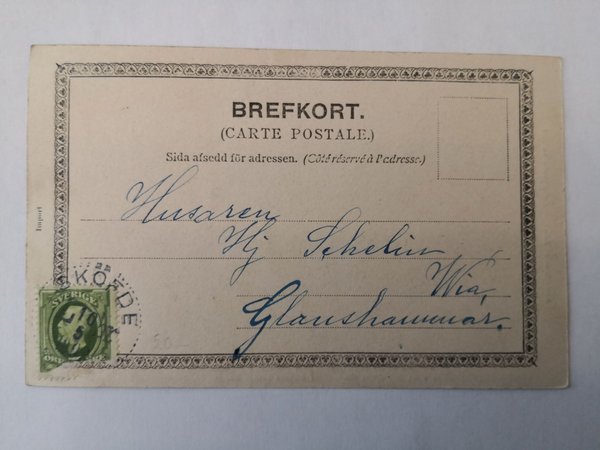 BREFKORT.
(CARTE POSTALE.)
Sida afsedd för adressen. (Côté réservé à l'adresse.)
Import
Husaren
Hj Sehelin
Wia,
Glanshammar.
SKÖFDE
SVERIGE